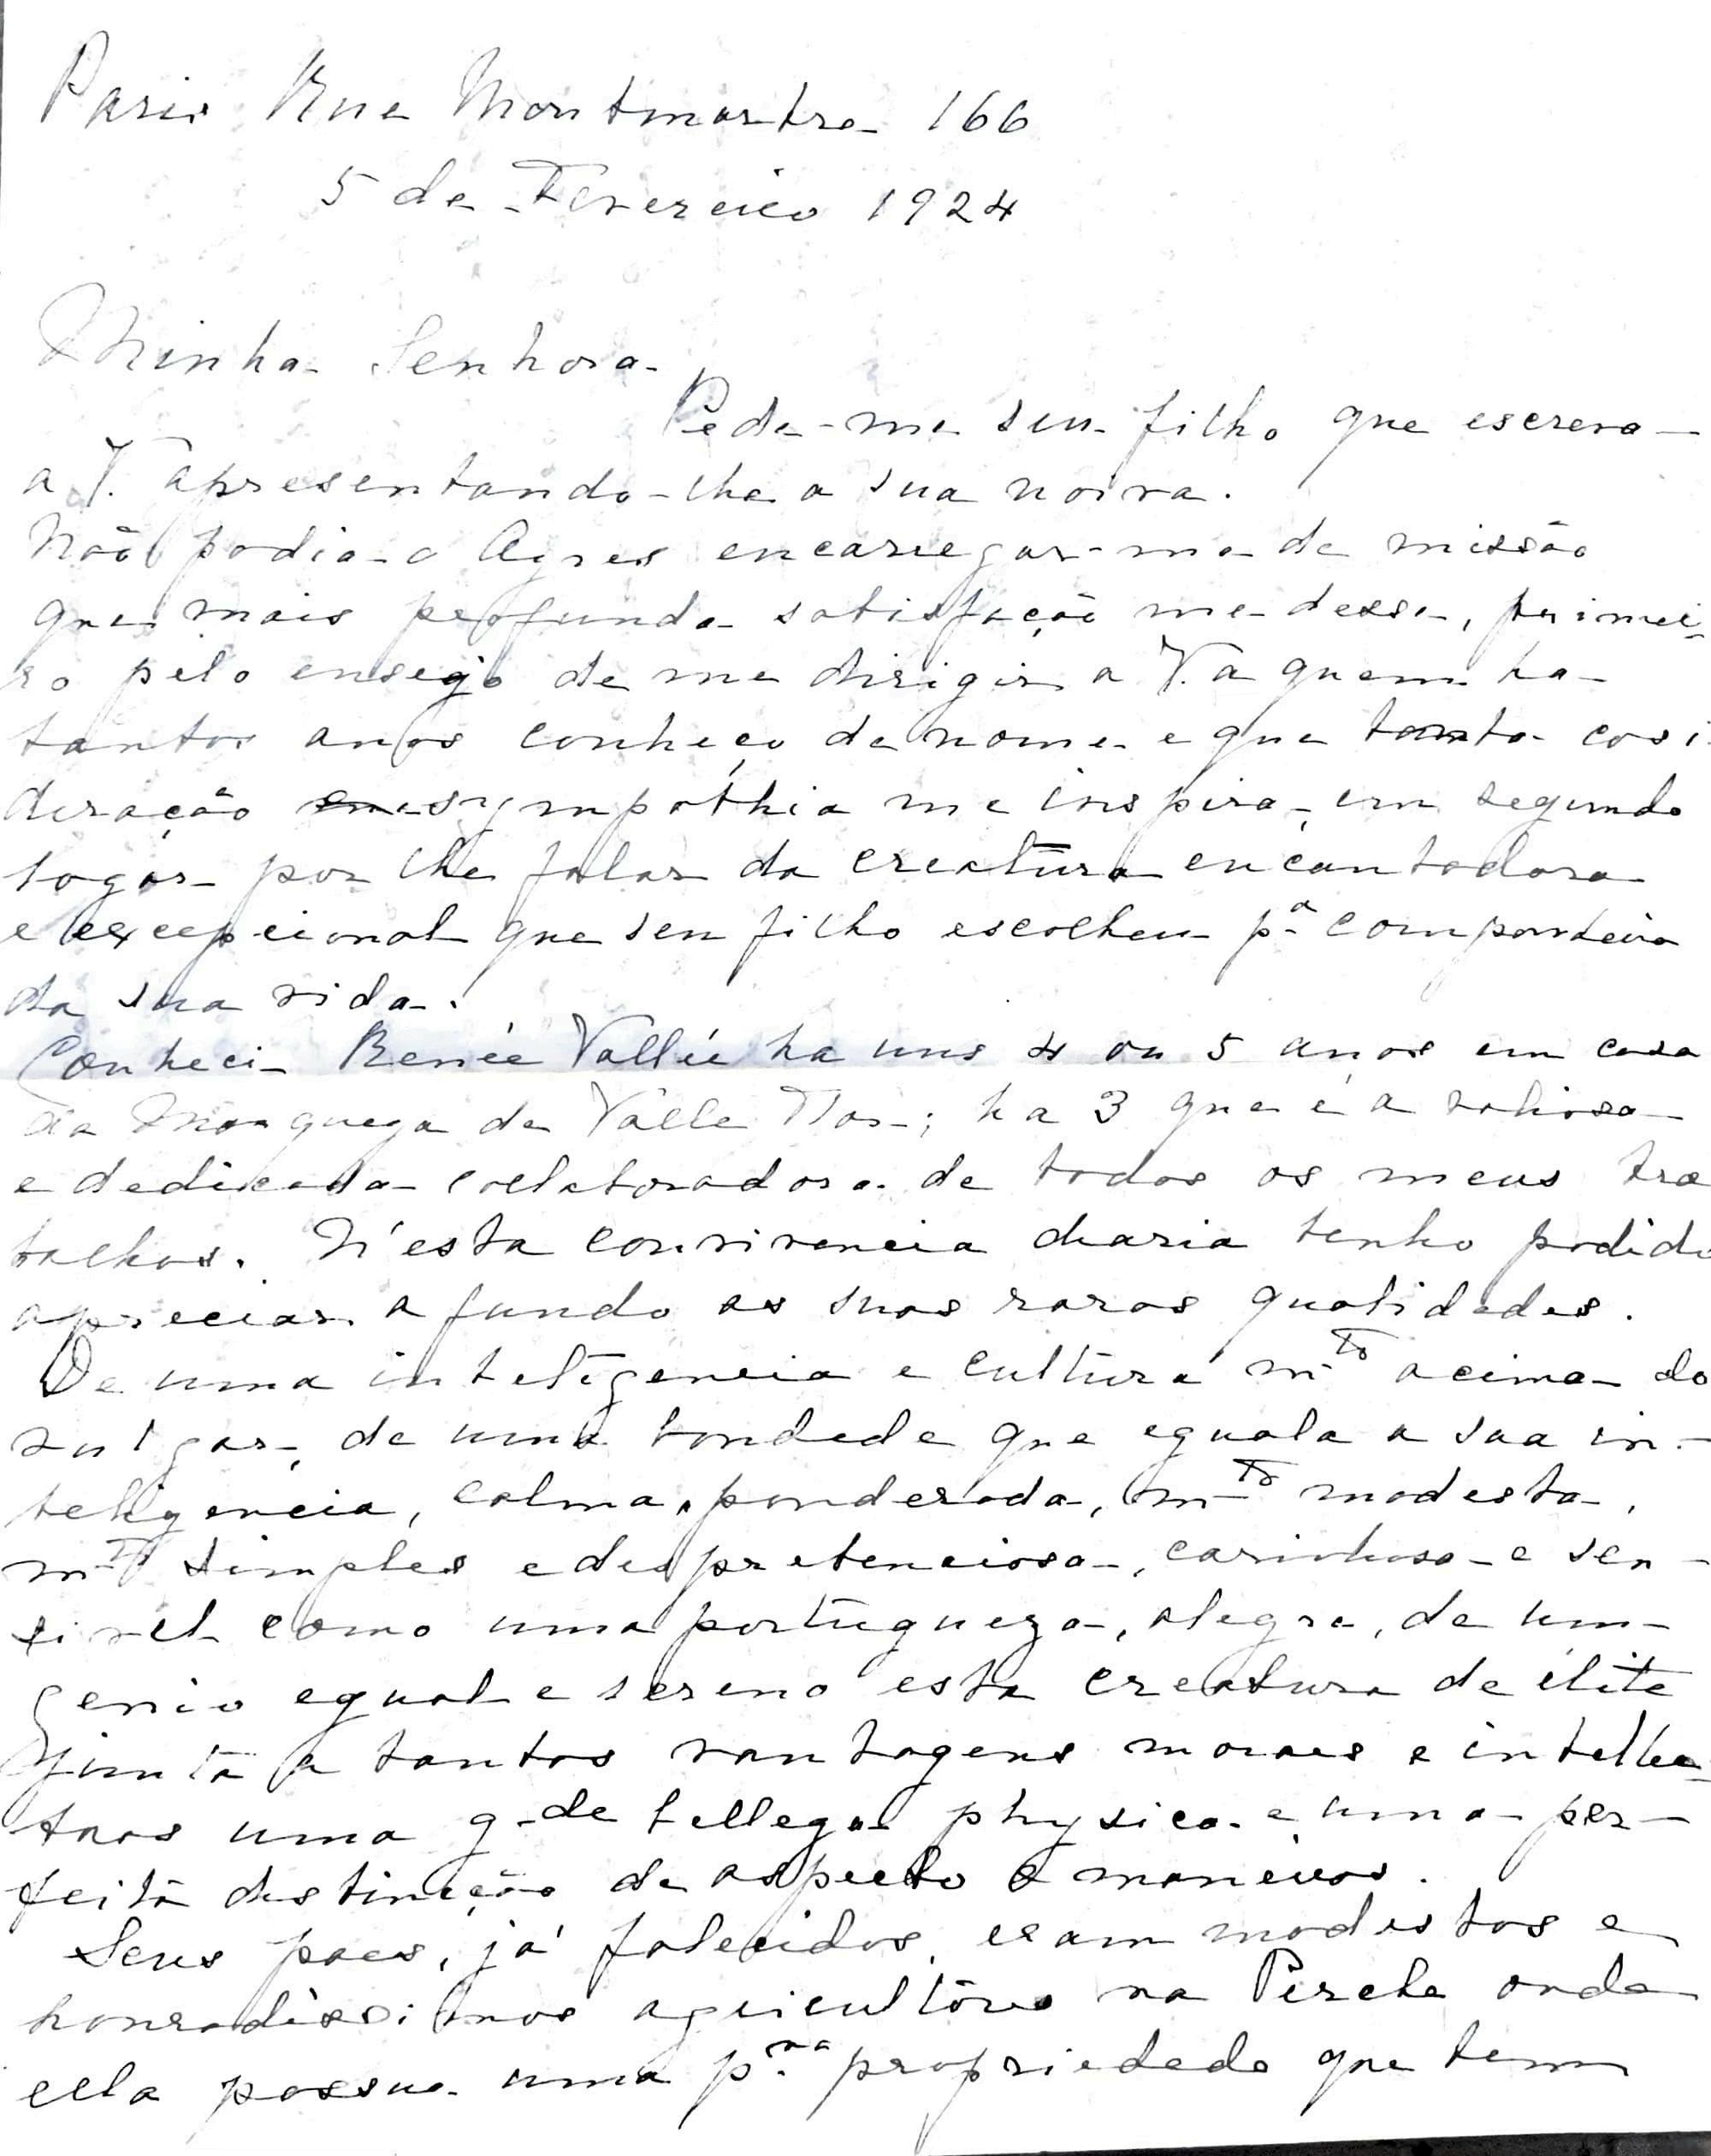 Paris Rue Montmartre 166
5 de Fevereiro 1924
Minha Senhora
Pede-me seu filho que escreva
a V. apresentando-lhe a sua noiva.
Não podia o Ayres encarregar-me de missão
que mais profunda satisfação me desse, primei-
ro pelo ensejo de me dirigir a V. a quem ha
tantos anos conheço de nome e que tanta cosi-
deração sympathia me inspira, em segundo
logar por lhe falar da creatura encantadora
e excepcional que seu filho escolheu pª companheira
da sua vida.
Conheci Renée Vallée ha uns 4 ou 5 anos em casa
da Marqueza de Valle Flor; ha 3 que é a valiosa
e dedicada collaboradora de todos os meus tra
balhos. N'esta convivencia diaria tenho podido
apreciar a fundo as suas raras qualidades.
De uma inteligencia e cultura mto acima do
vulgar, de uma bondade que eguala a sua in-
teligencia, calma, ponderada, mto modesta,
mto simples e despretenciosa, carinhosa e sen-
sivel como uma portugueza, alegre, de um
genio egual e sereno esta creatura de élite
junta a tantas vantagens moraes e intellec-
tuas uma g-de belleza physica e uma per-
feita distincção de aspecto e maneiras.
Seus paes, já falecidos, eram modestos e
honradissimos agricultores na Perche onde
ella possue uma pna propriedade que tem